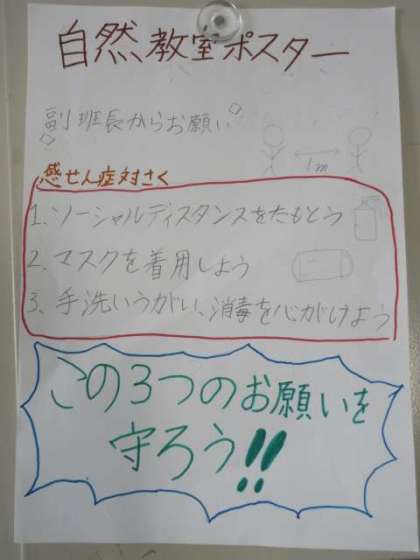 自然教室ポスター
副班長からお願い
1m
感せん症対さく
1.ソーシャルディスタンスをたもとう
2.マスクを着用しよう
3.手洗いうがい、消毒を心がけよう
この3つのお願いを
守ろう!!